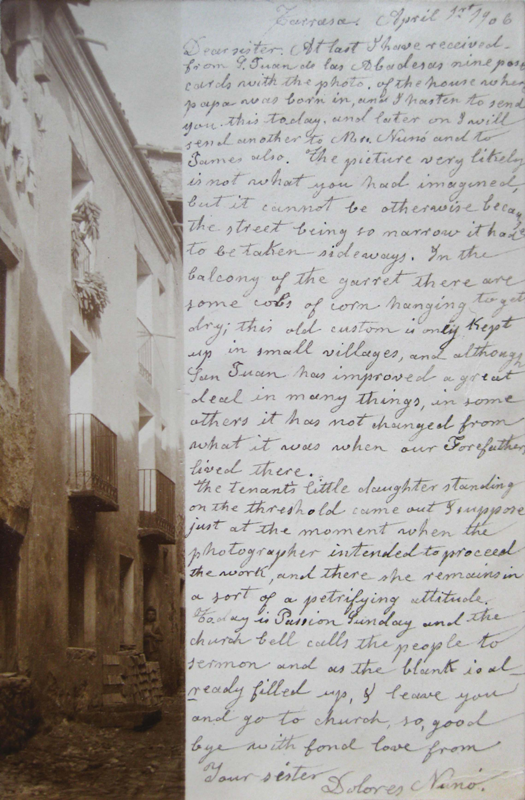 Tarrasa. April 1rst 1906
Dear sister. At last I have received
from S. Juan de las Abadesas nine post
cards with the photo. of the house where
papa was born in, and I hasten to send
you this today, and later on I will
send another to Mrs. Nunó and to
James also. The picture very likely
is not what you had imagined,
but it cannot be otherwise because
the street being so narrow it has
to be taken sideways. In the
balcony of the garret there are
some cobs of corn hanging to get
dry; this old custom is only kept
up in small villages, and although
San Juan has improved a great
deal in many things, in some
others it has not changed from
what it was when our Forefathers
lived there.
The tenants little daughter standing
on the threshold came out I suppose
just at the moment when the
photographer intended to proceed
the work, and there she remains in
a sort of a petrifying attitude.
Today is Passion Sunday and the
church bell calls the people to
sermon and as the blank is al-
ready filled up, I leave you
and go to church, so, good
bye with fond love from
Your sister Dolores Nunó.